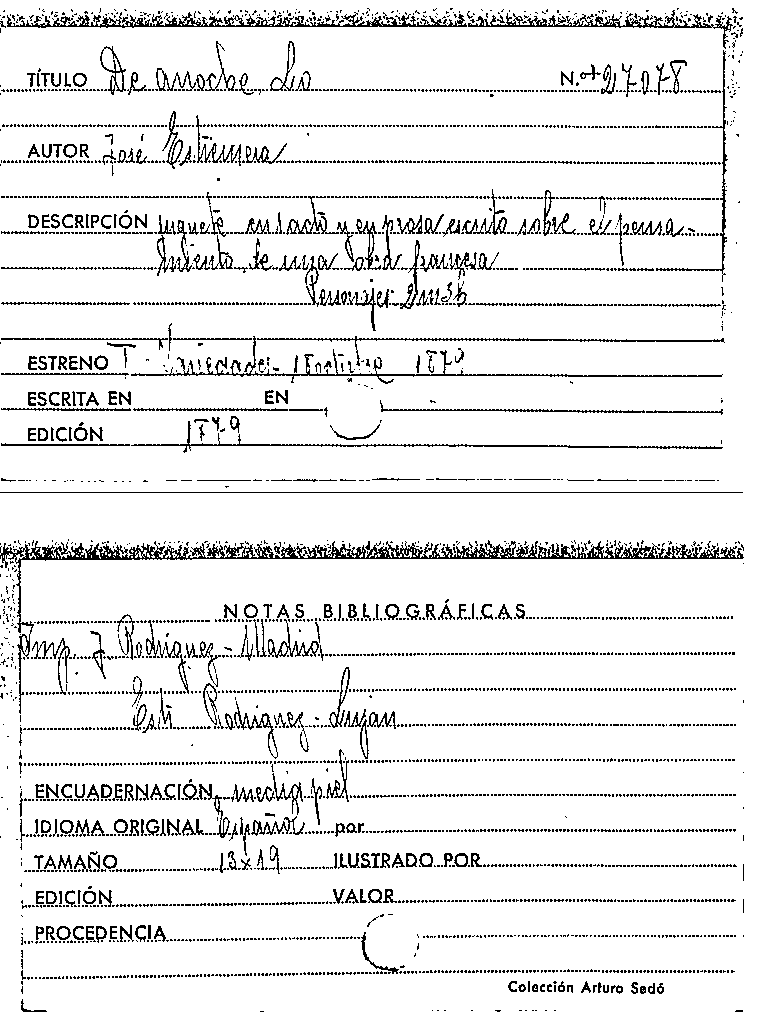 TÍTULO De anoche, Lo N.º 27078
AUTOR José Estremera
DESCRIPCIÓN juguete en 1 acto y en prosa escrito sobre el pensa-
miento de una obra francesa
Personajes 2m3h
ESTRENO T. Variedades - 1 Octubre 1879
ESCRITA EN EN
EDICIÓN 1879
NOTAS BIBLIOGRÁFICAS
Imp. J. Rodriguez - Madrid
Est: Rodriguez - Lujan
ENCUADERNACIÓN media piel
IDIOMA ORIGINAL Español por
TAMAÑO 13x19 ILUSTRADO POR
EDICIÓN VALOR
PROCEDENCIA
Colección Arturo Sedó